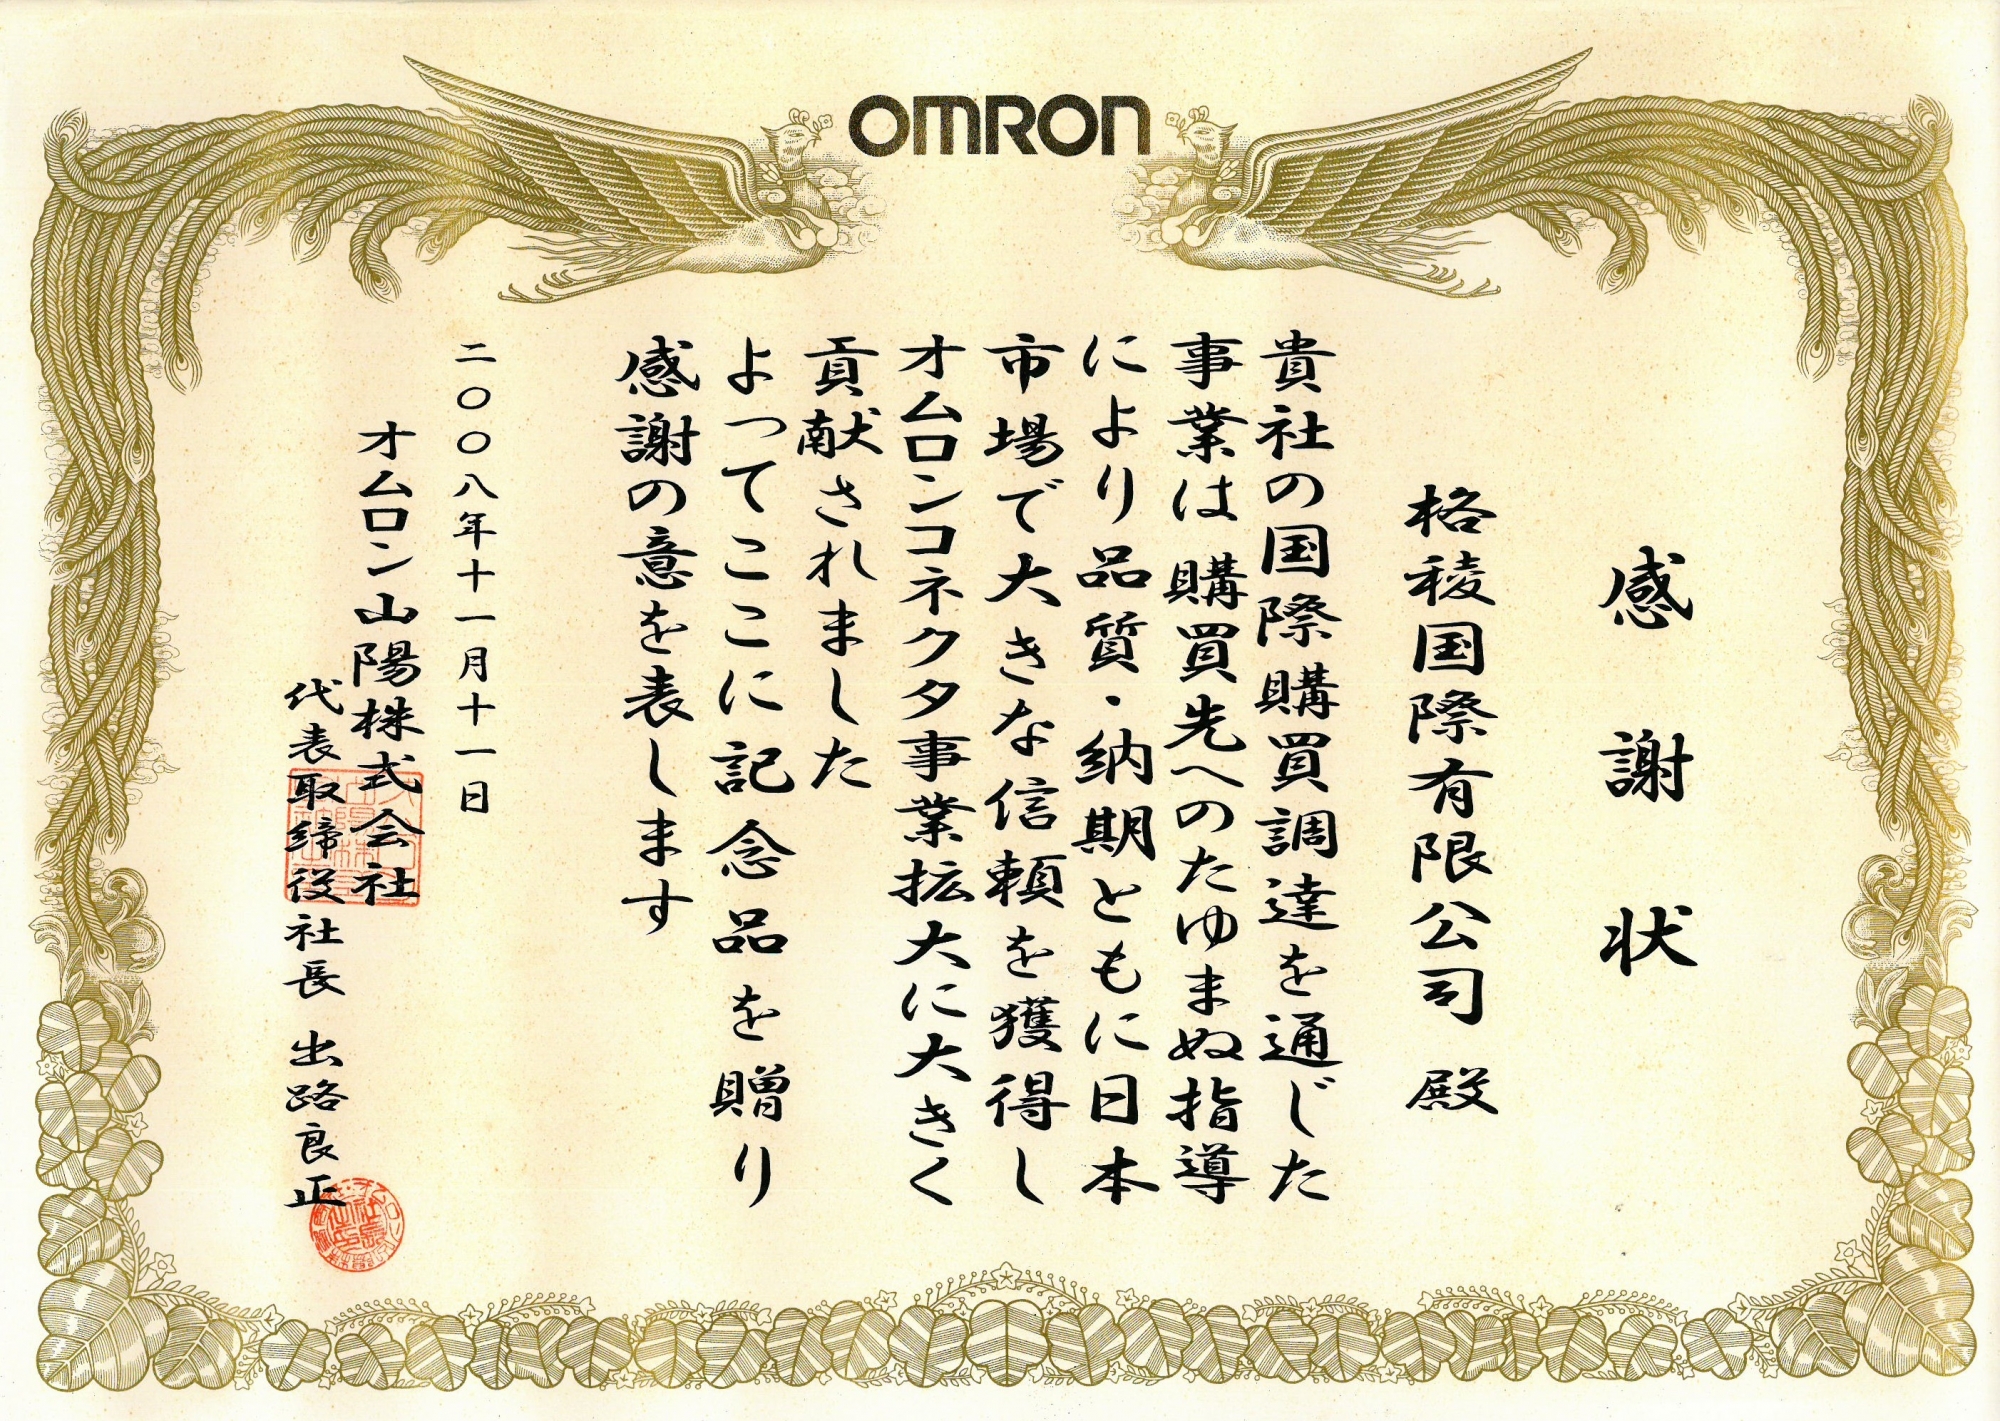 OMRON
感謝状
格稜国際有限公司 殿
貴社の国際購買調達を通じた
事業は購買先へのたゆまぬ指導
により品質・納期ともに日本
市場で大きな信頼を獲得し
オムロンコネクタ事業拡大に大きく
貢献されました
よってここに記念品を贈り
感謝の意を表します
二〇〇八年十一月十一日
オムロン山陽株式会社
代表取締役社長 出路良正